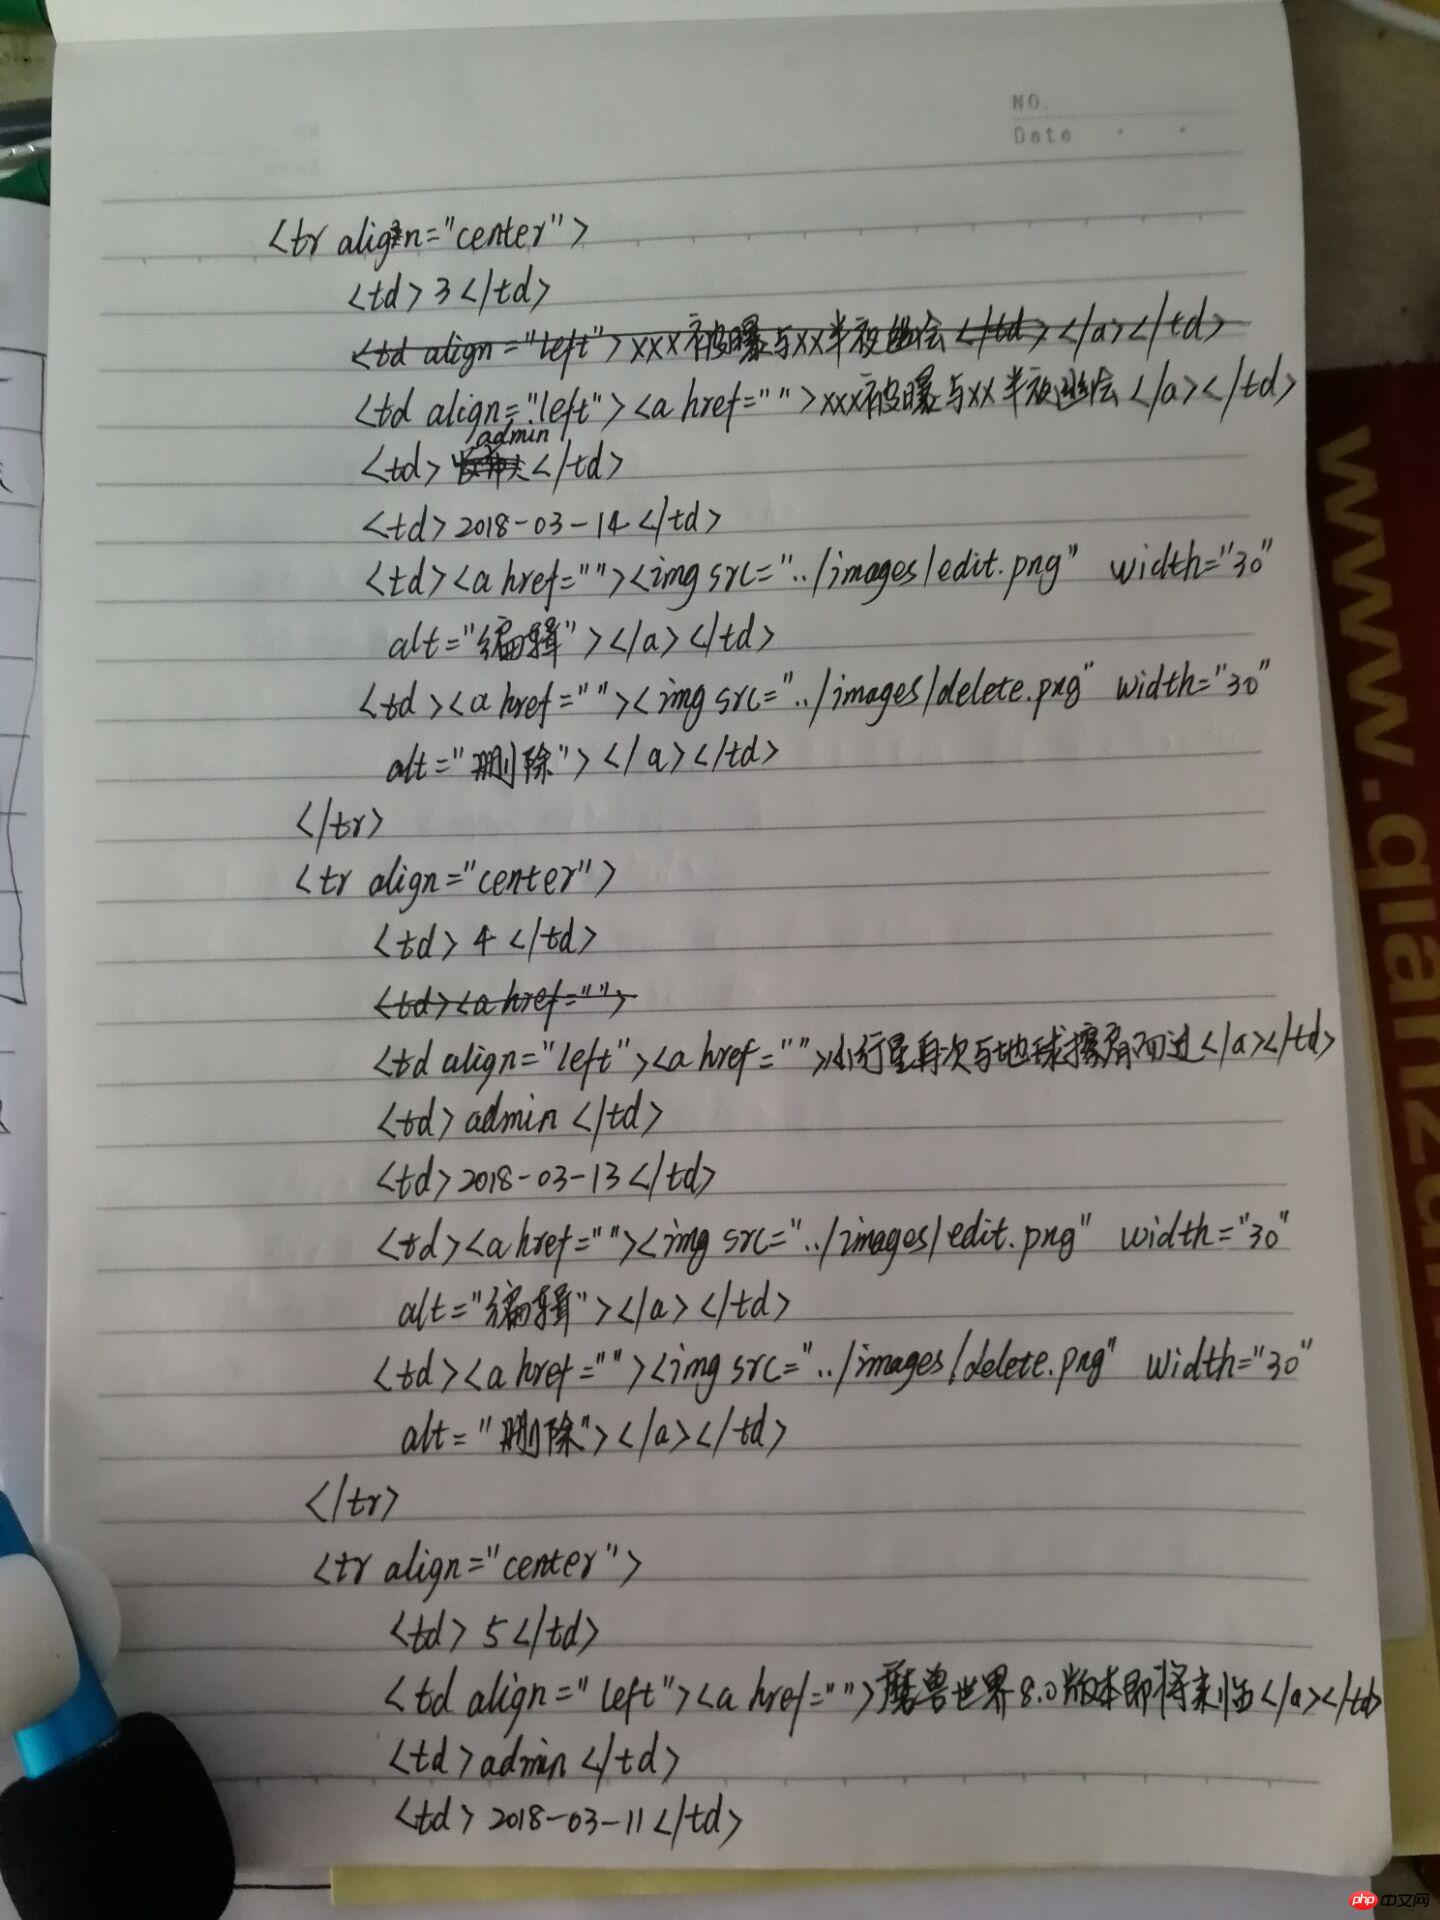 NO.
Date
<tr align="center">
<td>3</td>
<td align="left">xxx被曝与xx半夜幽会</td></a></td>
<td align="left"><a href="">xxx被曝与xx半夜幽会</a></td>
admin
<td></td>
<td>2018-03-14</td>
<td><a href=""><img src="../images/edit.png" width="30"
alt="编辑"></a></td>
<td><a href=""><img src="../images/delete.png" width="30"
alt="删除"></a></td>
</tr>
<tr align="center">
<td>4</td>
<td><a href="">
<td align="left"><a href="">小行星再次与地球擦肩而过</a></td>
<td>admin</td>
<td>2018-03-13</td>
<td><a href=""><img src="../images/edit.png" width="30"
alt="编辑"></a></td>
<td><a href=""><img src="../images/delete.png" width="30"
alt="删除"></a></td>
</tr>
<tr align="center">
<td>5</td>
<td align="left"><a href="">魔兽世界8.0版本即将来临</a></td>
<td>admin</td>
<td>2018-03-11</td>
www.qianzan
php 中文网